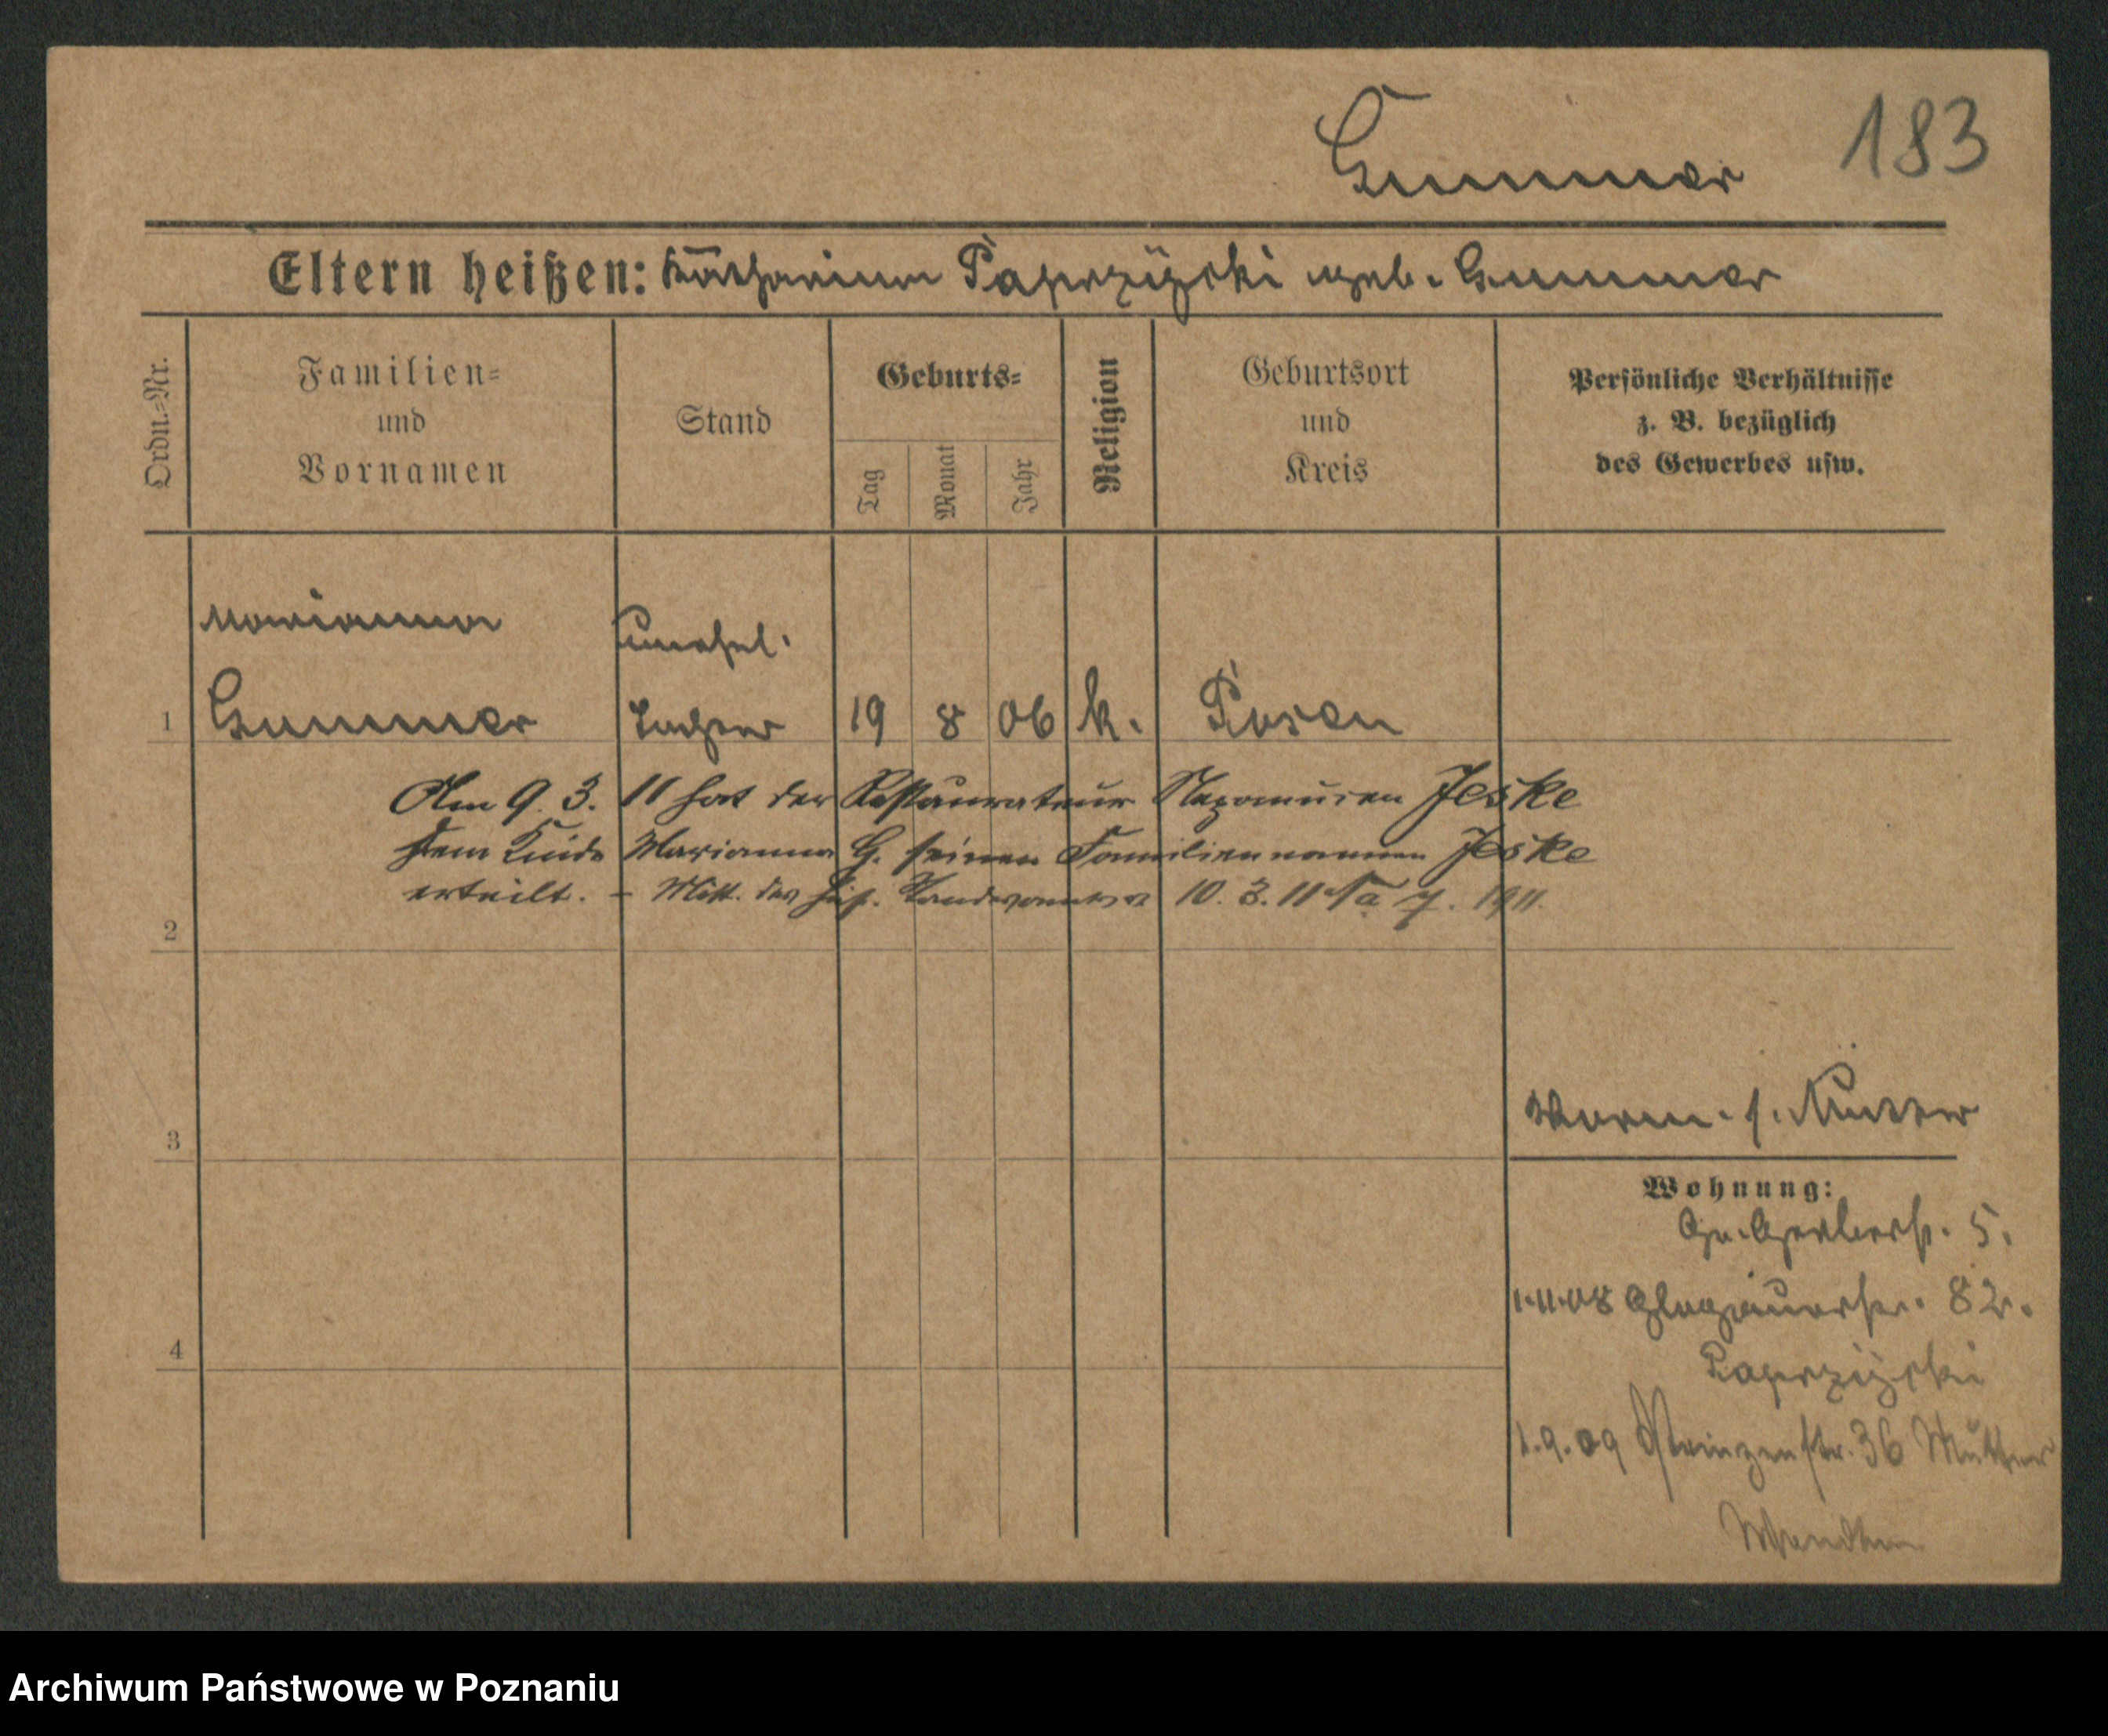 Gummer 183
Eltern heißen: Katharina Paprzycki geb. Gummer
Ordn.-Nr.
Familien-
und
Vornamen
Stand
Geburts-
Tag
Monat
Jahr
Religion
Geburtsort
und
Kreis
Persönliche Verhältnisse
z. B. bezüglich
des Gewerbes usw.
Marianna unehel.
1 Gummer Tochter 19 8 06 k. Posen
Am 9. 3. 11 hat der Restaurateur Nepomucen Jeske
dem Kinde Marianna G. seinen Familiennamen Jeske
erteilt. – Mitt. des hies. Standesamtes v. 10. 3. 11
2
3
Vorm. s. Mutter
Wohnung:
Gr. Gerberstr. 5.
1.11.08 Glogauerstr. 82.
4
Paprzycki
1.9.09 Prinzenstr. 36 Mutter
Archiwum Państwowe w Poznaniu